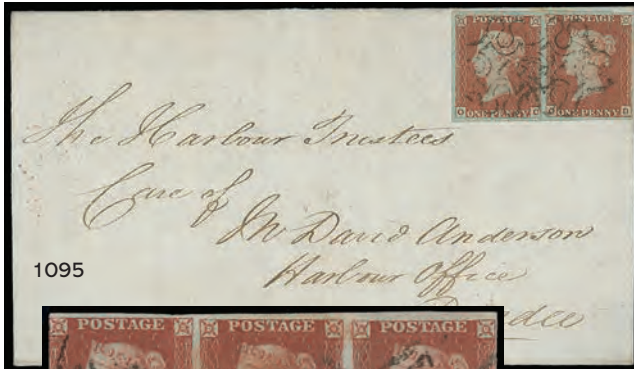 POSTAGE POSTAGE
ONE PENNY ONE PENNY
The Harbour Trustees
Care of
Mr David Anderson
1095
Harbour Office
POSTAGE POSTAGE POSTAGE